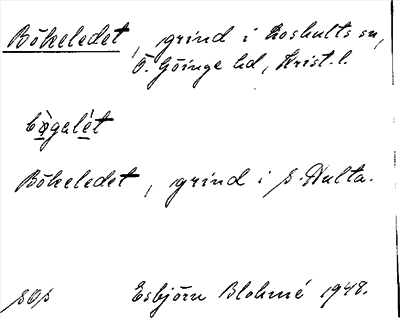 Bökeledet, grind i Loshults sn,
Ö. Göinge hd, Krist. l.
Bökeledet, grind i S. Hulta.
Esbjörn Blohmé 1948.